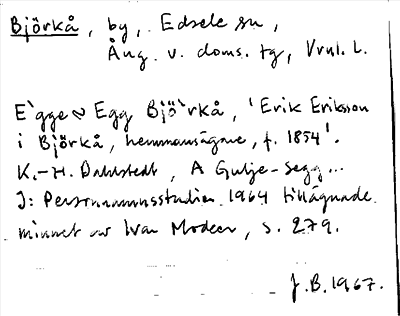 Björkå, by, Edsele sn,
Ång. v. doms. tg, Vrnl. L.
E`gge ~ Egg Björ`kå, 'Erik Eriksson
i Björkå, hemmansägare, f. 1854'.
K.-H. Dahlstedt, A Gulje-Segg...
I: Personnamnsstudier 1964 tillägnade
minnet av Ivar Modéer, s. 279.
J.B. 1967.